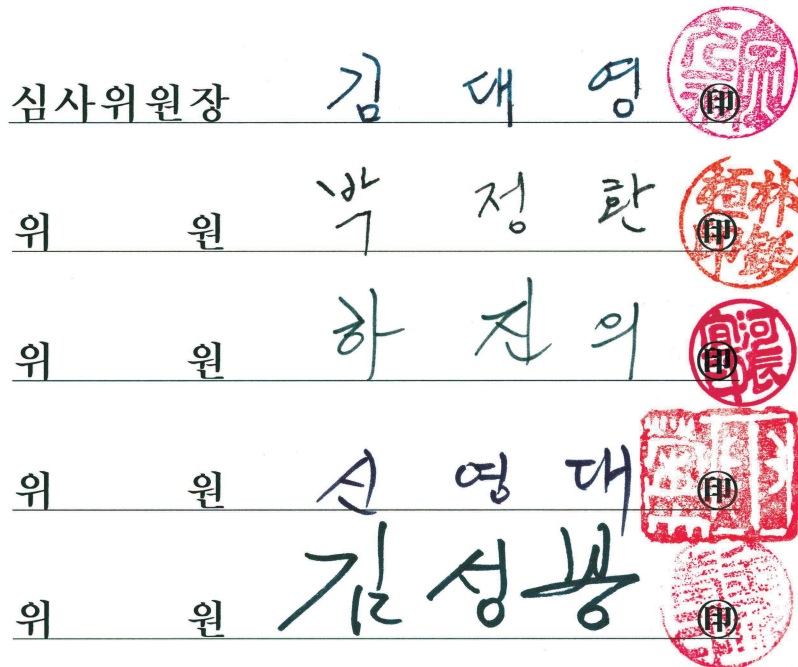 심사위원장 김 대 영 ㊞
위 원 박 정 환 ㊞
위 원 하 진 의 ㊞
위 원 신 영 대 ㊞
위 원 김 성 봉 ㊞